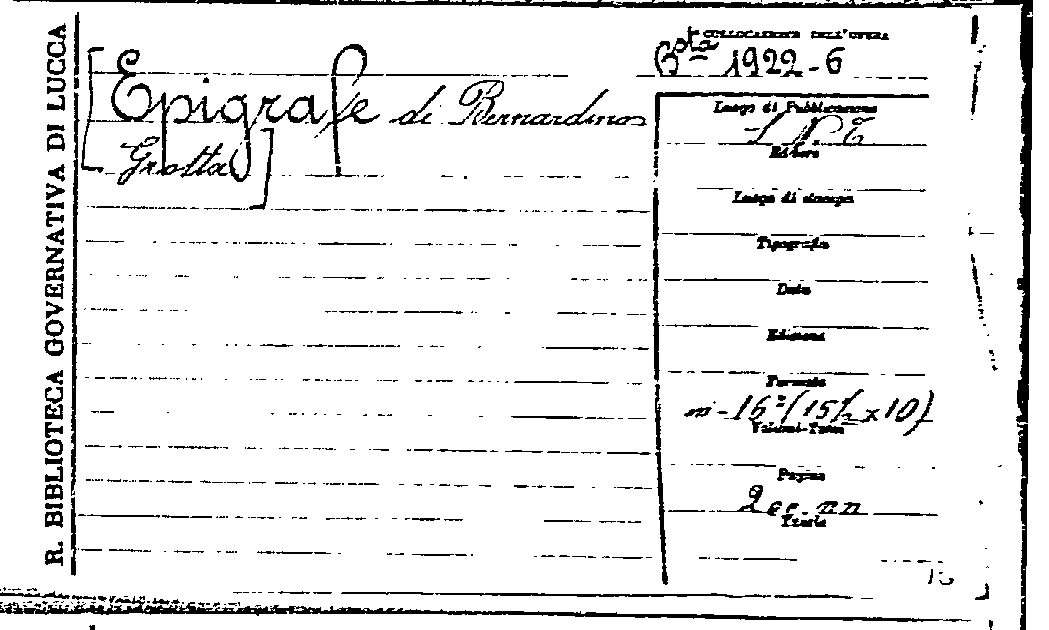 R. BIBLIOTECA GOVERNATIVA DI LUCCA
COLLOCAZIONE DELL'OPERA
Bsta 1922-6
[Epigrafe di Bernardino
Grotta]
Luogo di Pubblicazione
S. N. T.
Editore
Luogo di stampa
Tipografia
Data
Edizione
Formato
in-16º (15½ x 10)
Volumi-Tomi
Pagine
2 cc. nn
Tavole